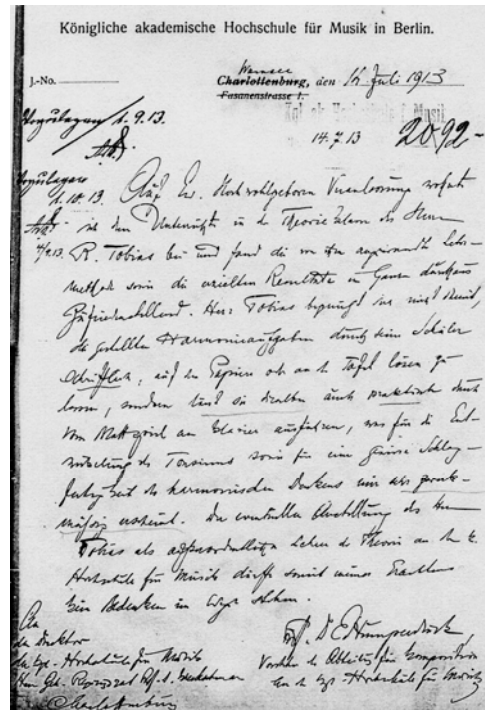 Königliche akademische Hochschule für Musik in Berlin.
J.-No.
Wannsee
Charlottenburg, den 14 Juli 1913
Fasanenstrasse 1.
Kgl. ak. Hochschule f. Musik
14.7.13 2092
Vorzulegen 1.9.13.
Vorzulegen
1.10.13. Auf Ew. Hochwohlgeboren Veranlassung wohnte
ich dem Unterricht in der Theorie des Herrn
R. Tobias bei und fand die von ihm angewandte Lehr-
methode sowie die erzielten Resultate im Ganzen durchaus
zufriedenstellend. Herr Tobias begnügt sich nicht damit,
die gestellten Harmonieaufgaben durch seine Schüler
schriftlich, auf dem Papier oder an der Tafel lösen zu
lassen, sondern lässt sie dieselben auch praktisch durch
am Klavier ausführen, was für die Ent-
wickelung des Tonsinnes sowie für eine gewisse Schlag-
fertigkeit des harmonischen Denkens mir sehr zweck-
mässig erscheint. Der eventuellen Anstellung des Herrn
Tobias als außerordentlicher Lehrer der Theorie an der k.
Hochschule für Musik dürfte somit meines Erachtens
kein Bedenken im Wege stehen.
An
den Direktor
der kgl. Hochschule für Musik
Herrn Geh. Prof. Dr. Kretzschmar
Charlottenburg
Prof. Dr. E. Humperdinck,
Vorsteher der Abteilung für Komposition
an der kgl. Hochschule für Musik